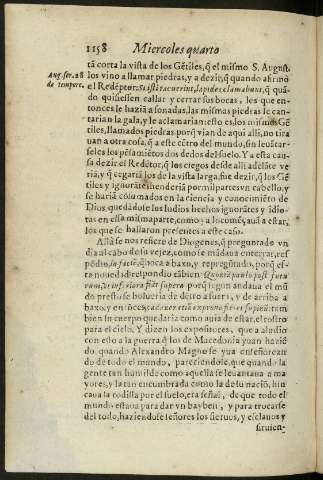 1158 Miercoles quarto
tã corta la vista de los Gẽtiles, q̃ el mismo S. August.
Aug. ser. 28 de tempore.
los vino a llamar piedras, y a dezir, q̃ quando afirmò
el Redẽptor: Si isti tacuerint, lapides clamabunt, q̃ quã
do quisiessen callar y cerrar sus bocas, les que
entonces le haziã a sonadas, las mismas piedras le can
tarian la gala, y le aclamarian: esto es, los mismos Gẽ
tiles, llamados piedras, porq̃ vian de aqui alli, no tira
uan a otra cosa, q̃ a este cẽtro del mundo, sin leuãtar
seles los pẽsamiẽtos dos dedos del suelo. Y a esta cau
sa dezir el Redẽtor, q̃ los ciegos desde alli adelãte ve
riã, y q̃ cegariã los de la vista larga, fue dezir, q̃ los Gẽ
tiles y ignorãtes henderiã por mil partes vn cabello, y
se hariã cõsumados en la ciencia y conocimiẽto de
Dios, quedãdose los Iudios hechos ignorãtes y idio-
tas en essa misma parte, como y a lo comẽçauã a estar,
los que se hallaron presentes a este caso.
Allà se nos refiere de Diogenes, q̃ preguntado vn
dia al cabo de su vejez, como se mãdaua enterrar, res
põdio, In faciẽ, q̃ boca a baxo, y repregũtado, porq̃ es-
ta nouedad respondio tãbien: Quoniã paulo post futu
rum, vt inferiora fiãt supera porq̃ segun andaua el mũ
do presto se bolueria de dẽtro a fuera, y de arriba a
baxo, y entõces,
bien su cuerpo quedaria como auia de estar, el rostro
para el cielo. Y dizen los expositores, que aludio
con esto a la guerra q̃ los de Macedonia yuan haziẽ
do, quando Alexandro Magno se yua enseñorean-
do de todo el mundo, pareciendole, que quando la
gente tan humilde como aquella se leuantaua a ma
yores, y la tan encumbrada como la de su naciõ, hin
caua la rodilla por el suelo, era señal, de que todo el
mundo estaua para dar vn bayben, y para trocarse
del todo, haziendose señores los sieruos, y esclauos y
siruien-